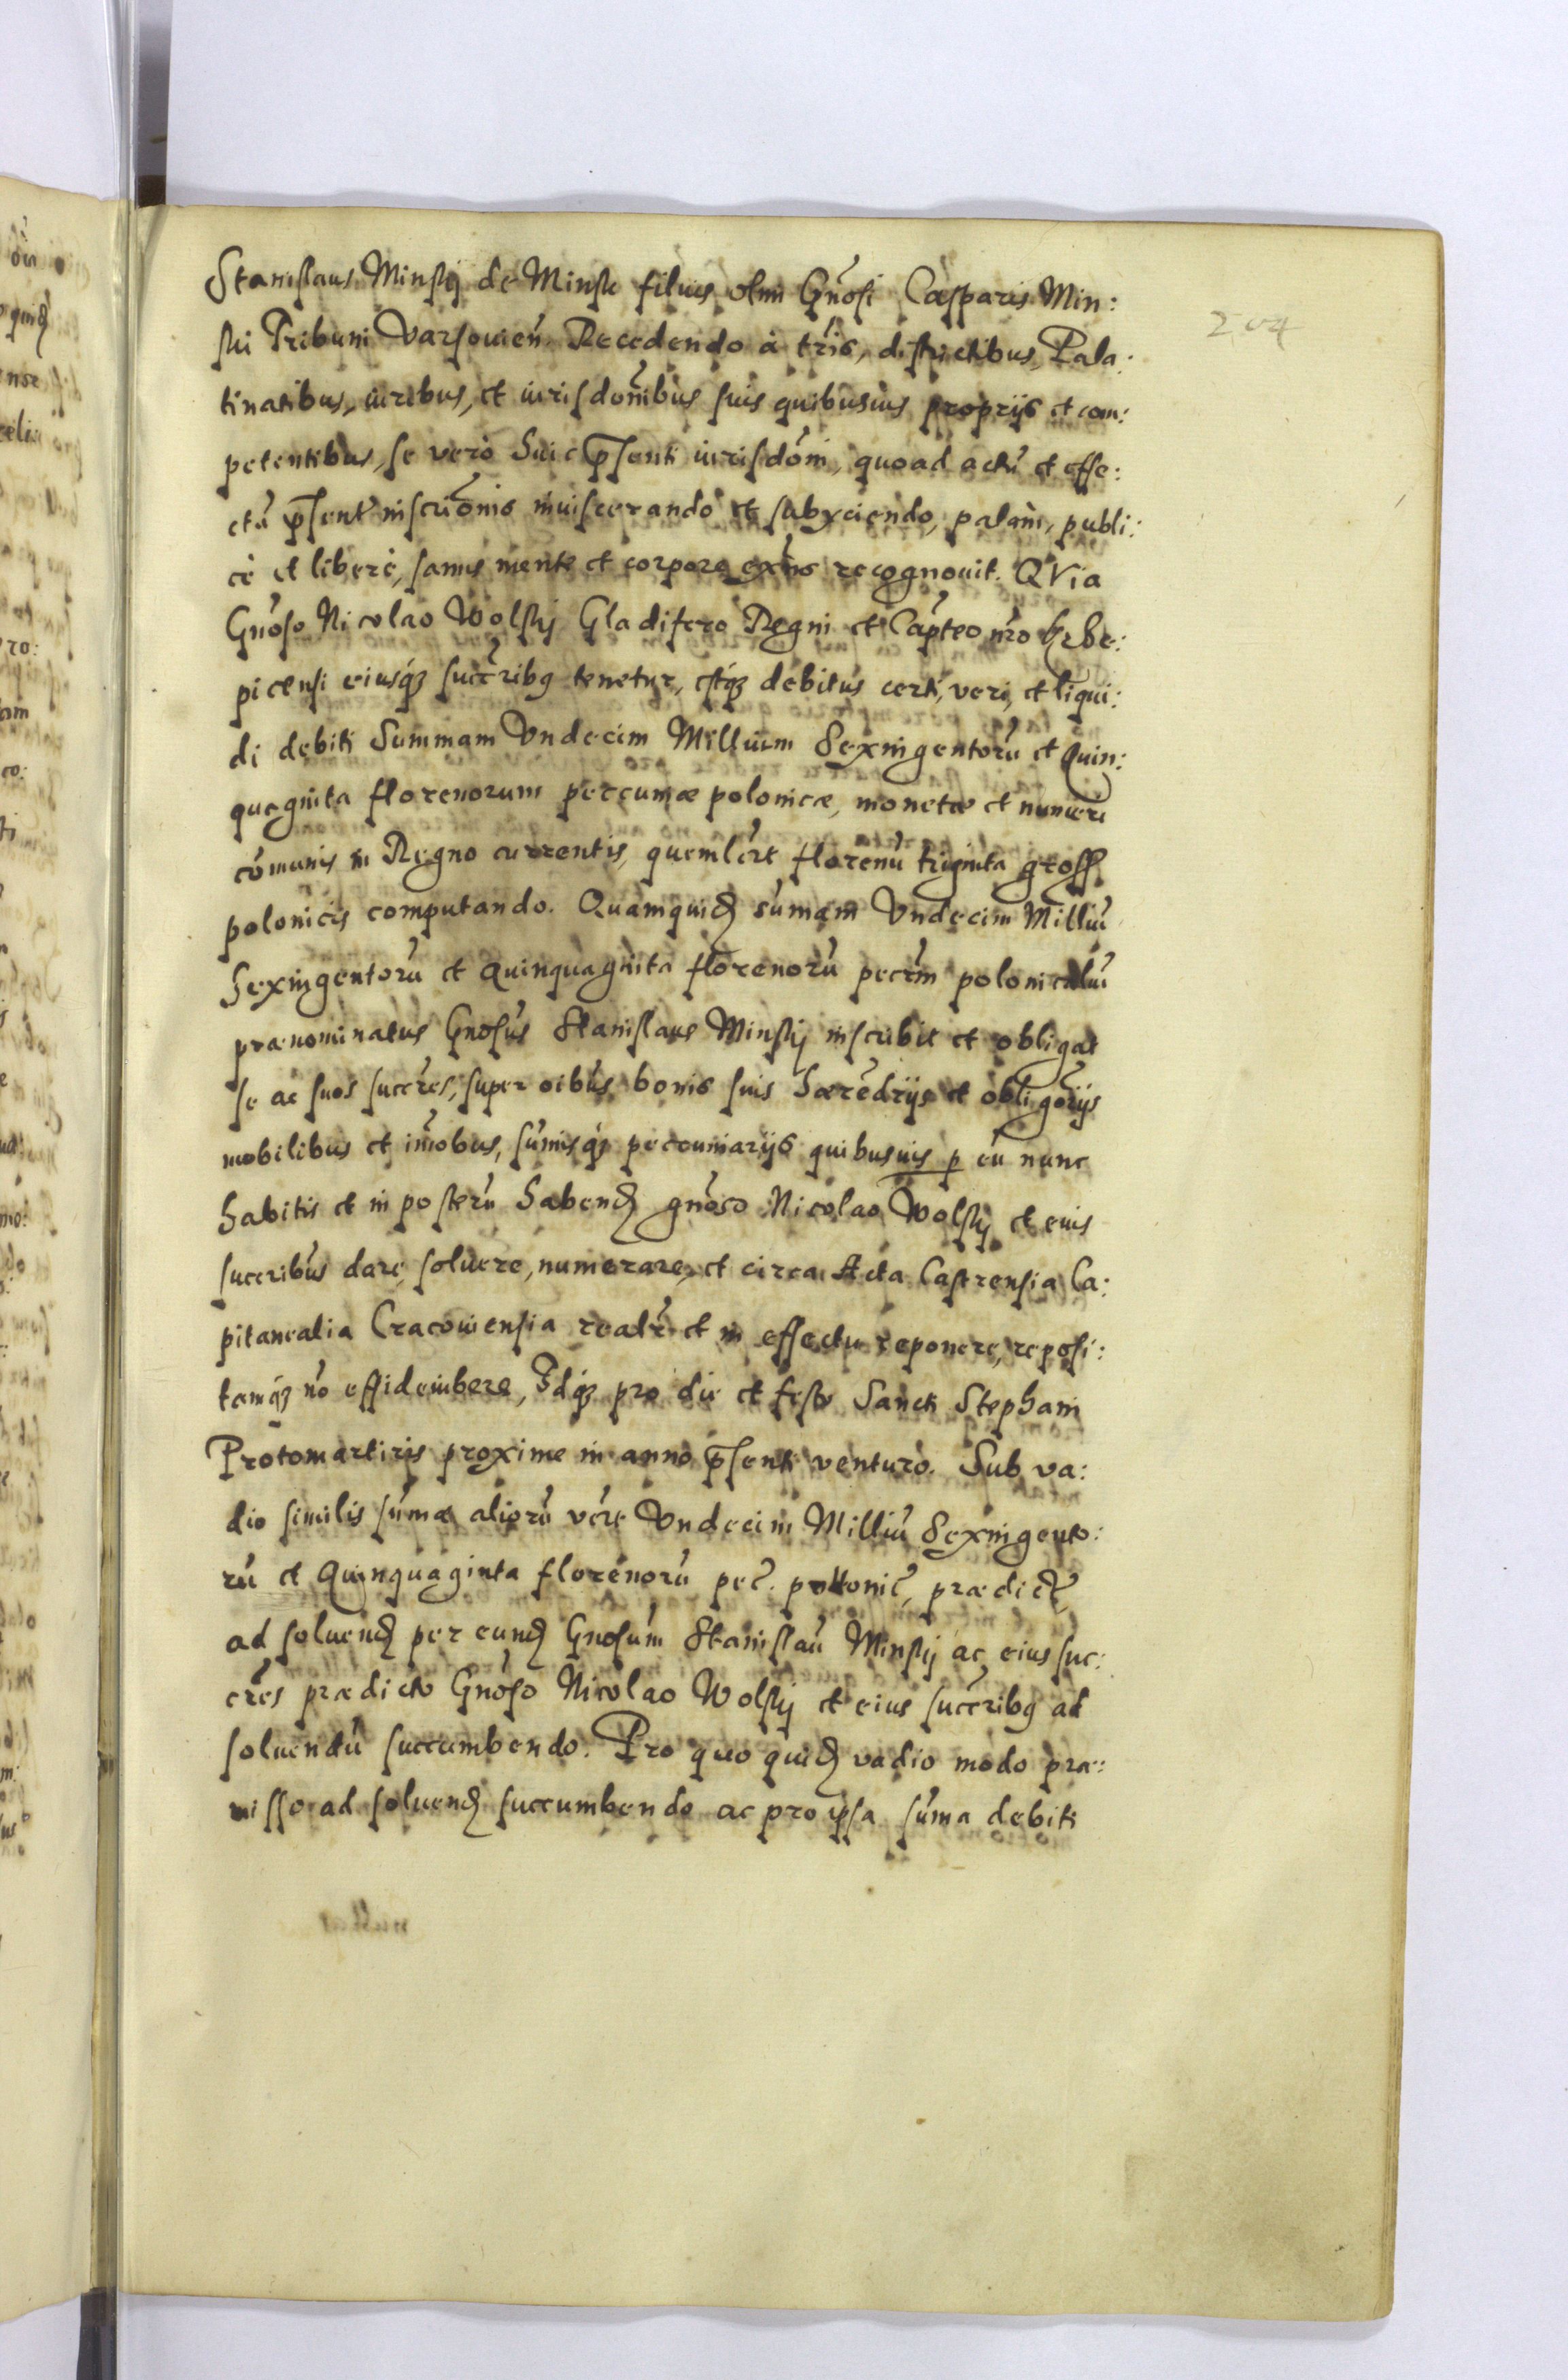 204
Stanislaus Minskÿ de Minsk filius olim Gnosi Casparis Min:
ski Tribuni Varsouien̄ Recedendo à tris, districtibus, Pala:
tinatibus, iuribus, et iurisdonibus suis quibusuis proprijs et com:
petentibus, se verò huic p̄senti iurisdoni, quoad actū et effe:
ctū p̄sent inscrionis inuiscerando et subyciendo, palàm, publi:
cè et liberè, sanus mente et corpore exn̄s recognouit. QVia
Gnoso Nicolao Wolskÿ Gladifero Regni et Capteo nro Krze:
picensi eiusq̄ succribq tenetur, estq̄ debitus certi, veri, et liqui:
di debiti Summam Vndecim Millium Sexingentorū et Quin:
quaginta florenorum peccuniæ polonicæ, monetæ et numeri
cōmunis in Regno currentis, quemlibt florenū triginta gross
polonicis computando. Quamquid sūmam Vndecim Milliū
Sexingentorū et Quinquaginta florenorū pecrm polonicaliū
prænominatus Gnosus Stanislaus Minskÿ inscribit et obligat
se ac suos succres, super oibus bonis suis hæredrijs et obligorijs
mobilibus et imobus, sūmisq̄ peccuniarijs quibusuis p eū nunc
habitis et in posterū habend gnoso Nicolao Wolskÿ et eius
succribus dare, soluere, numerare, et circa Acta Castrensia Ca:
pitanealia Cracouiensia realr et in effectu reponere, reposi:
tamq̄ nō effideiubere, Idq̄ pro die et festo Sancti Stephani
Protomartiris proxime in anno p̄senti venturo. Sub va:
dio similis sūmæ aliorū vere Vndecim Milliū Sexingento:
rū et Quinquaginta florenorū pec. polonic, prædict,
ad soluend per eund Gnosum Stanislaū Minskÿ ac eius suc:
cres prædicto Gnoso Nicolao Wolskÿ et eius succribq ad
soluendū succumbendo. Pro quo quid vadio modo præ:
misso ad soluend succumbendo ac pro ipsa sūma debiti